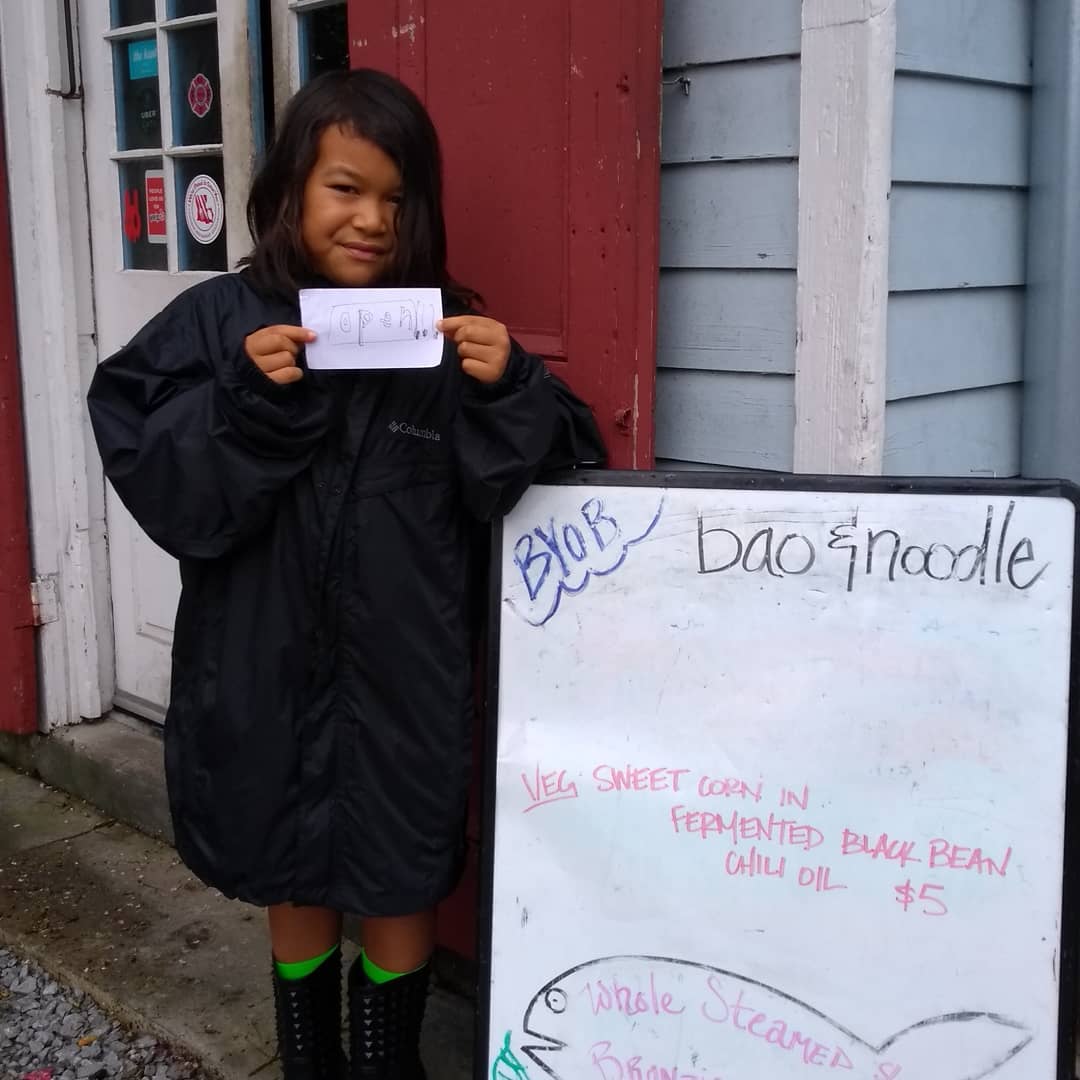 UBER
open!!
Columbia
BYOB
bao & noodle
VEG SWEET CORN IN
FERMENTED BLACK BEAN
CHILI OIL $5
Whole STEAMED